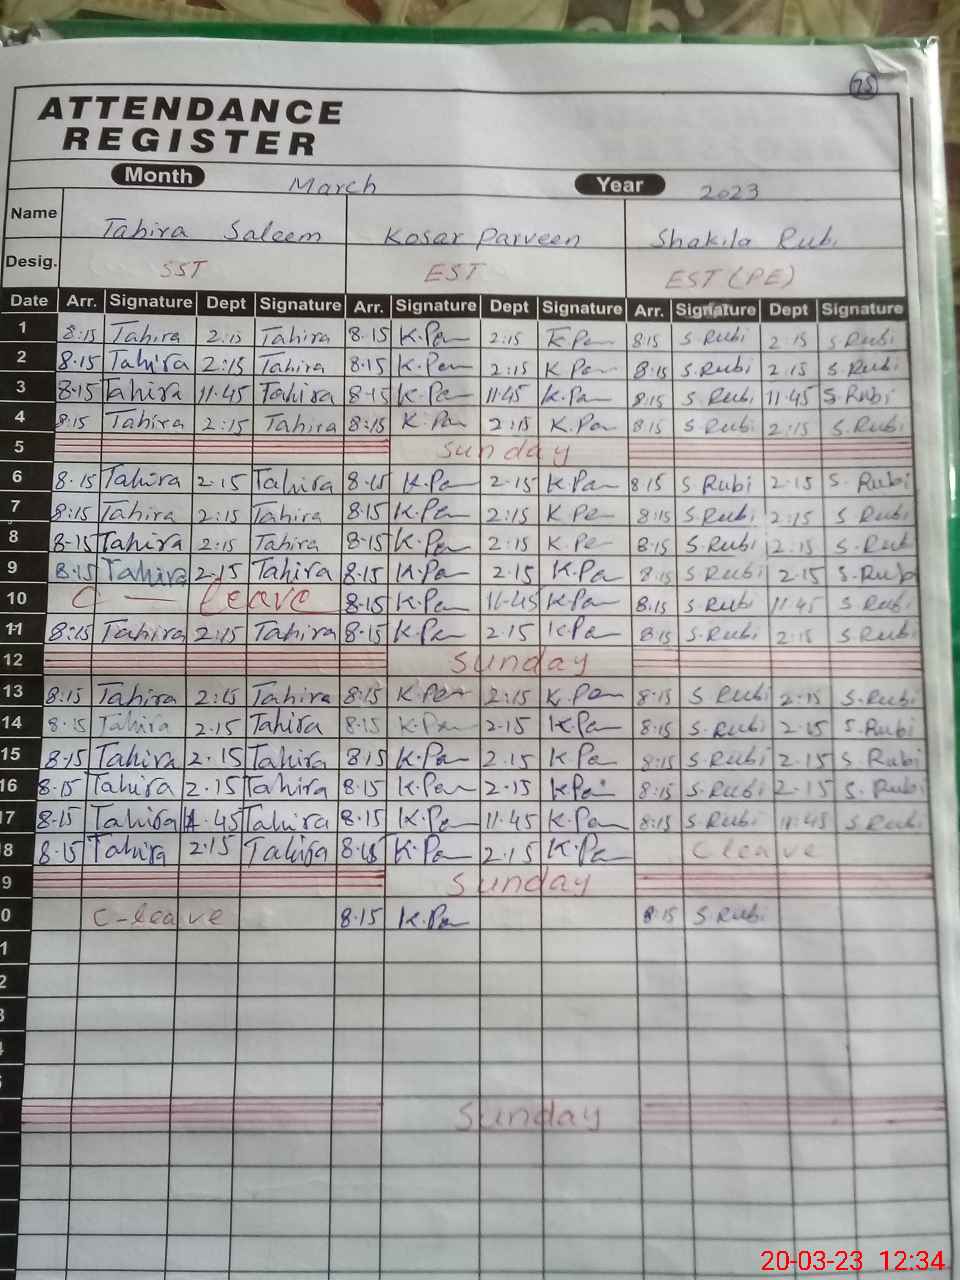 75
ATTENDANCE
REGISTER
Month March Year 2023
Name Tahira Saleem Kosar Parveen Shakila Rubi
Desig. SST EST EST (PE)
Date Arr. Signature Dept Signature Arr. Signature Dept Signature Arr. Signature Dept Signature
1 8:15 Tahira 2:15 Tahira 8.15 K.Pen 2:15 K.Pen 8:15 S.Rubi 2:15 S.Rubi
2 8.15 Tahira 2:15 Tahira 8.15 K.Pen 2:15 K.Pen 8:15 S.Rubi 2.15 S.Rubi
3 8.15 Tahira 11.45 Tahira 8.15 K.Pen 11.45 K.Pen 8:15 S.Rubi 11.45 S.Rubi
4 8:15 Tahira 2:15 Tahira 8:15 K.Pen 2:15 K.Pen 8:15 S.Rubi 2:15 S.Rubi
5 Sunday
6 8.15 Tahira 2.15 Tahira 8.15 K.Pen 2.15 K.Pen 8.15 S Rubi 2.15 S. Rubi
7 8:15 Tahira 2:15 Tahira 8.15 K.Pen 2:15 K.Pen 8:15 S.Rubi 2:15 S Rubi
8 8-15 Tahira 2:15 Tahira 8.15 K.Pen 2:15 K.Pen 8:15 S.Rubi 2:15 S.Rubi
9 8.15 Tahira 2.15 Tahira 8.15 K.Pen 2.15 K.Pen 8:15 S.Rubi 2.15 S.Rubi
10 C - leave 8.15 K.Pen 11-45 K.Pen 8:15 S.Rubi 11.45 S Rubi
11 8:15 Tahira 2:15 Tahira 8.15 K.Pen 2.15 K.Pen 8:15 S.Rubi 2:15 S.Rubi
12 Sunday
13 8:15 Tahira 2:15 Tahira 8:15 K.Pen 2:15 K.Pen 8:15 S Rubi 2:15 S.Rubi
14 8.15 Tahira 2.15 Tahira 8.15 K.Pen 2.15 K.Pen 8:15 S.Rubi 2.15 S.Rubi
15 8.15 Tahira 2.15 Tahira 8.15 K.Pen 2.15 K.Pen 8:15 S.Rubi 2.15 S.Rubi
16 8.15 Tahira 2.15 Tahira 8.15 K.Pen 2.15 K.Pen 8:15 S.Rubi 2.15 S.Rubi
17 8.15 Tahira 11.45 Tahira 8.15 K.Pen 11.45 K.Pen 8:15 S Rubi 11.45 S Rubi
8 8.15 Tahira 2.15 Tahira 8.15 K.Pen 2.15 K.Pen C leave
9 Sunday
0 C-leave 8.15 K.Pen 8.15 S.Rubi
1
2
3
Sunday
20-03-23 12:34